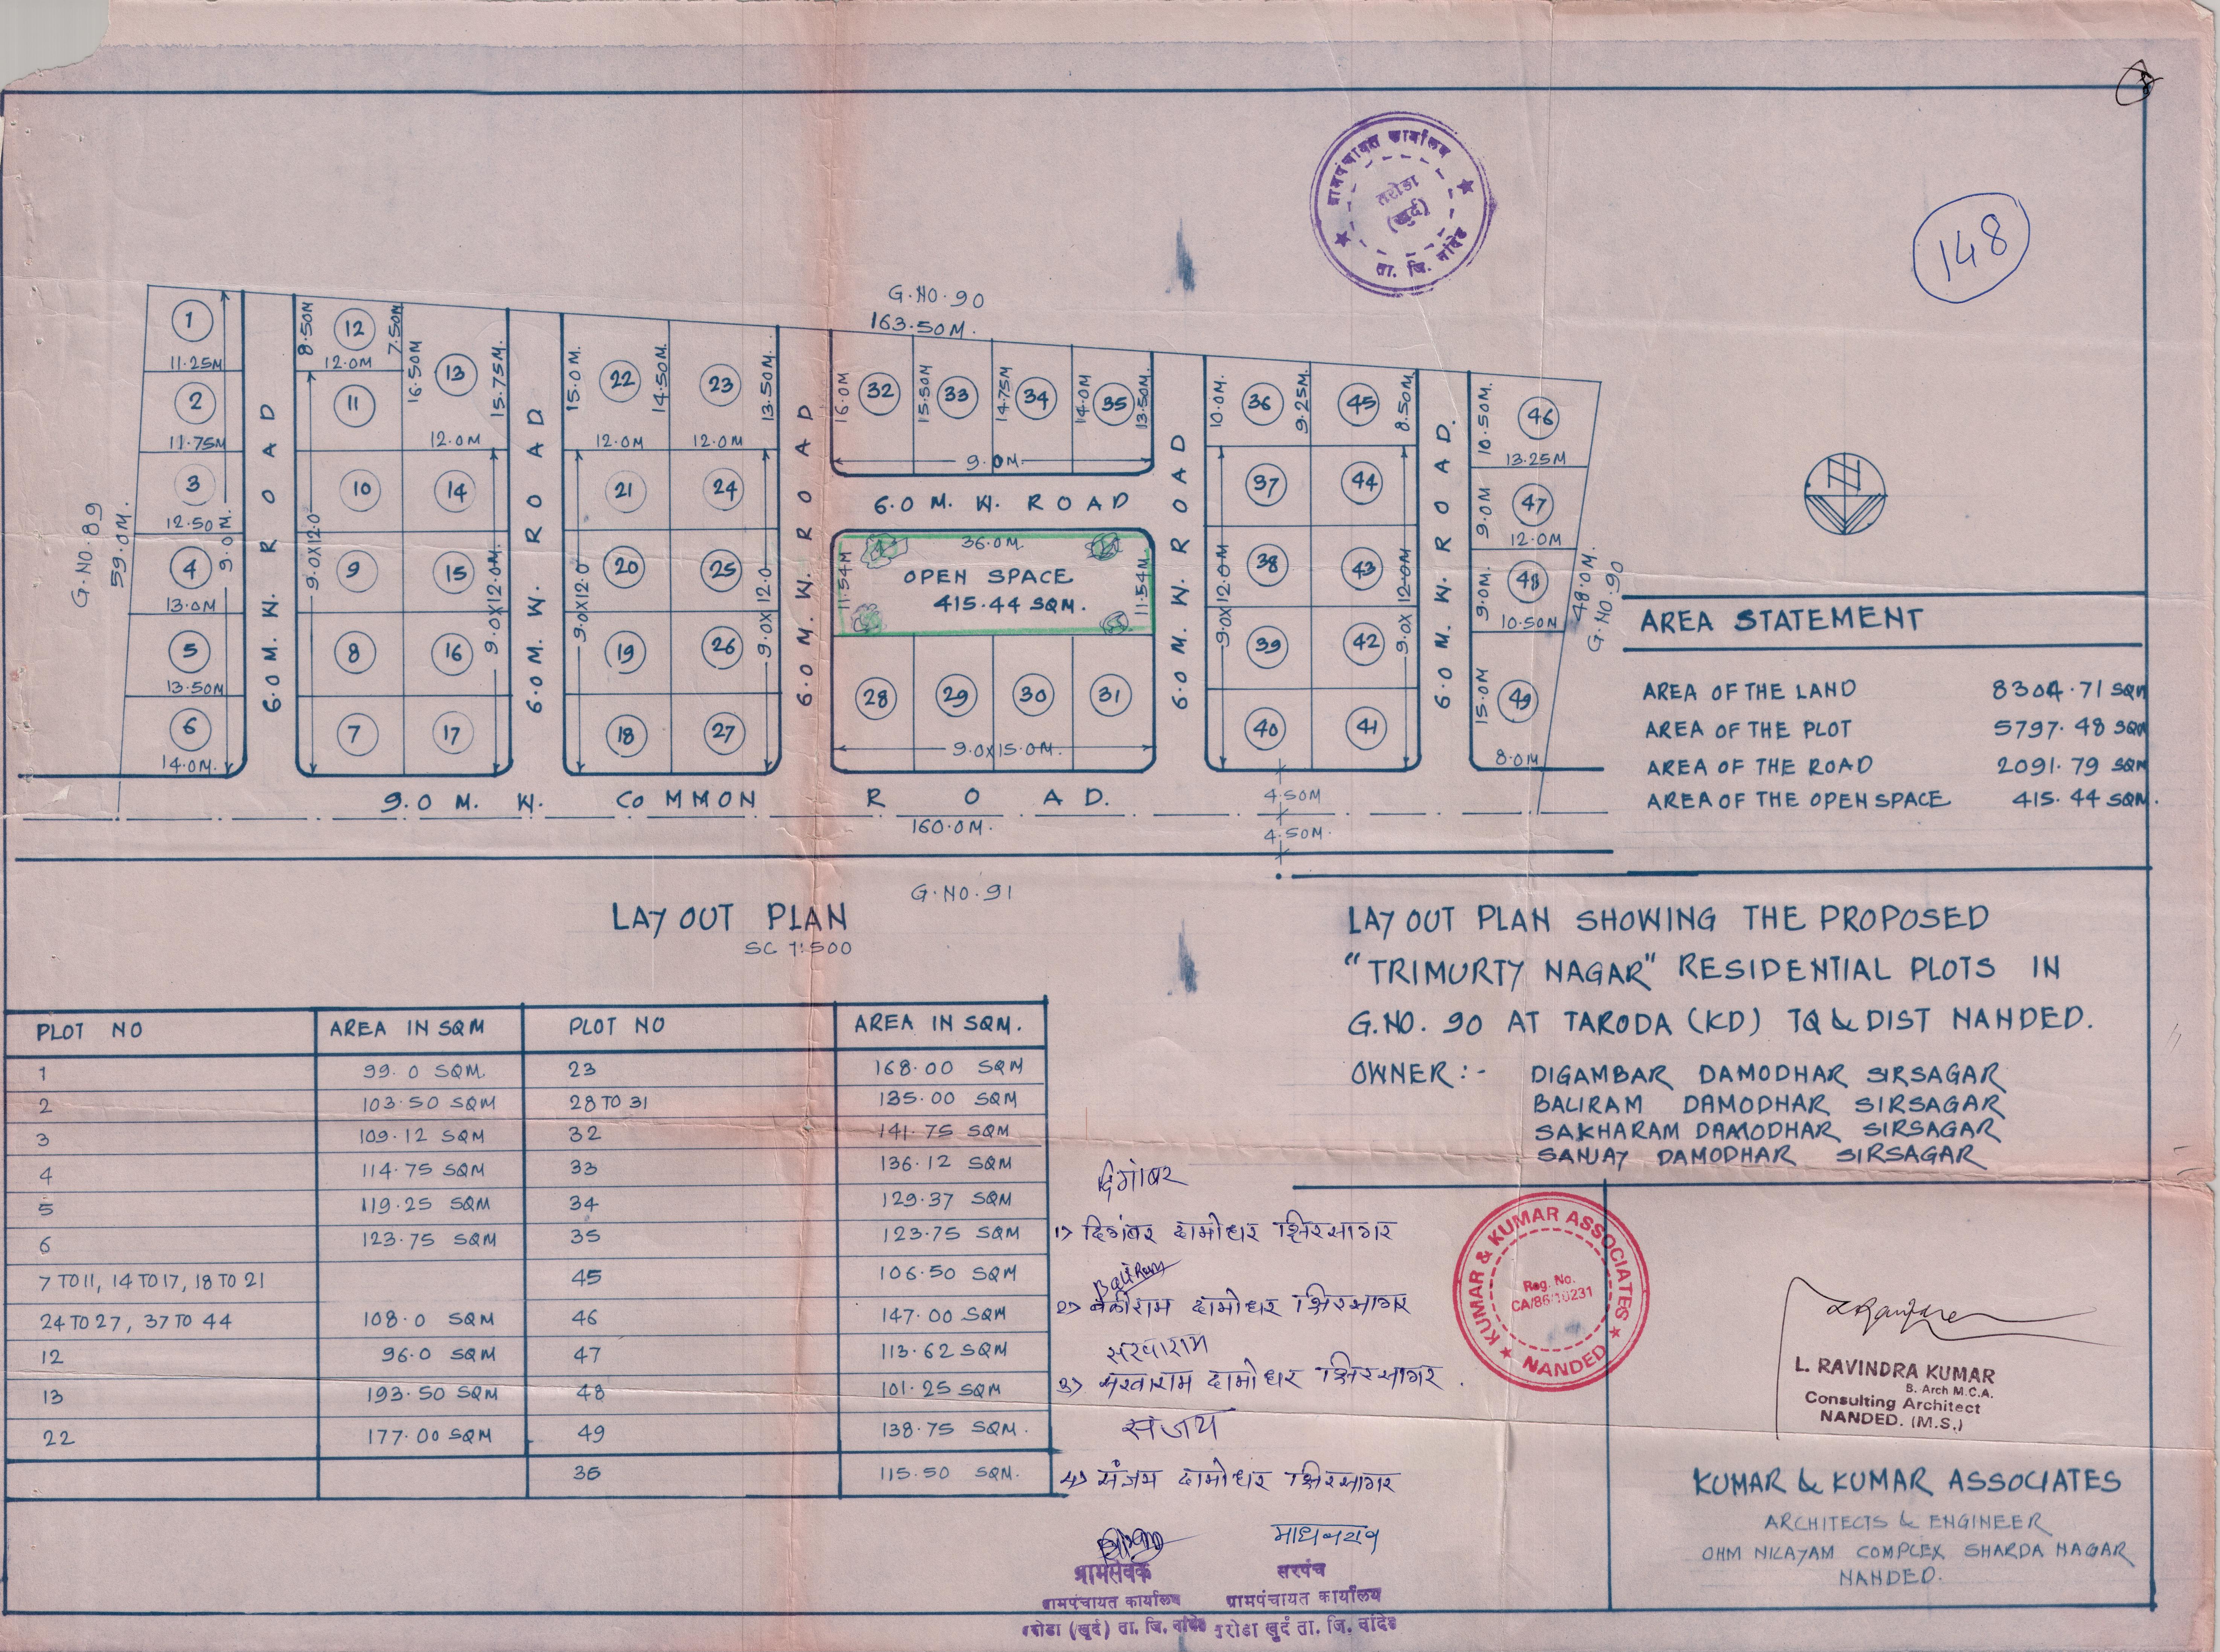 ग्रामपंचायत कार्यालय
तरोडा
(खुर्द)
ता. जि. नांदेड
148
G.NO.90
163.50M.
G.NO.89
59.0M.
1
11.25M
2
11.75M
3
12.50M.
4
13.0M
5
13.50M
6
14.0M.
9.0
6.0 M. W. ROAD
8.50M
12
7.50M
12.0M
11
10
9
8
7
9.0X12.0
16.50M
13
15.75M.
12.0M
14
15
16
17
9.0X12.0M.
6.0 M. W. ROAD
15.0M.
22
14.50M
23
13.50M.
12.0M
12.0M
21
24
20
25
19
26
18
27
9.0X12.0
9.0X12.0
6.0 M. W. ROAD
16.0M
32
15.50M
33
14.75M
34
14.0M
35
13.50M.
9.0M.
6.0 M. W. ROAD
36.0M.
11.54M
OPEN SPACE
415.44 SQM.
11.54M
28
29
30
31
9.0X15.0M.
6.0 M. W. ROAD
10.0M.
36
9.25M.
45
8.50M.
37
44
38
43
39
42
40
41
9.0X12.0M
9.0X12.0M
6.0 M. W. ROAD.
10.50M.
46
13.25M
9.0M
47
12.0M
9.0M.
48
10.50M
15.0M
49
8.0M
48.0M.
G.NO.90
9.0 M. W. COMMON ROAD.
160.0M.
4.50M
4.50M.
G.NO.91
LAYOUT PLAN
SC 1:500
AREA STATEMENT
AREA OF THE LAND 8304.71 SQM
AREA OF THE PLOT 5797.48 SQM
AREA OF THE ROAD 2091.79 SQM
AREA OF THE OPEN SPACE 415.44 SQM.
LAYOUT PLAN SHOWING THE PROPOSED
"TRIMURTY NAGAR" RESIDENTIAL PLOTS IN
G.NO. 90 AT TARODA (KD) TQ & DIST NANDED.
OWNER :- DIGAMBAR DAMODHAR SIRSAGAR
BALIRAM DAMODHAR SIRSAGAR
SAKHARAM DAMODHAR SIRSAGAR
SANJAY DAMODHAR SIRSAGAR
PLOT NO AREA IN SQM PLOT NO AREA IN SQM.
1 99.0 SQM. 23 168.00 SQM
2 103.50 SQM 28 TO 31 135.00 SQM
3 109.12 SQM 32 141.75 SQM
4 114.75 SQM 33 136.12 SQM
5 119.25 SQM 34 129.37 SQM
6 123.75 SQM 35 123.75 SQM
7 TO 11, 14 TO 17, 18 TO 21 45 106.50 SQM
24 TO 27, 37 TO 44 108.0 SQM 46 147.00 SQM
12 96.0 SQM 47 113.62 SQM
13 193.50 SQM 48 101.25 SQM
22 177.00 SQM 49 138.75 SQM.
36 115.50 SQM.
दिगांबर
1) दिगांबर दामोधर क्षिरसागर
Baliram
2) बळीराम दामोधर क्षिरसागर
सखाराम
3) सखाराम दामोधर क्षिरसागर.
संजय
4) संजय दामोधर क्षिरसागर
ग्रामसेवक
ग्रामपंचायत कार्यालय
तरोडा (खुर्द) ता. जि. नांदेड
माधवराव
सरपंच
ग्रामपंचायत कार्यालय
तरोडा खुर्द ता. जि. नांदेड
KUMAR & KUMAR ASSOCIATES
Reg. No.
CA/86/10231
NANDED
L. RAVINDRA KUMAR
B. Arch M.C.A.
Consulting Architect
NANDED. (M.S.)
KUMAR & KUMAR ASSOCIATES
ARCHITECTS & ENGINEER
OHM NILAYAM COMPLEX SHARDA NAGAR
NANDED.